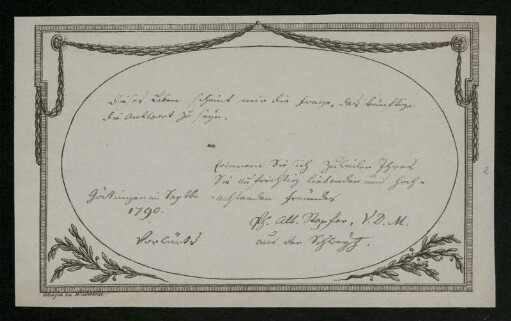 Dieses Leben scheint mir die Frage, das künftige
die Antwort zu seyn.
Erinnern Sie sich zuweilen Ihres
Sie aufrichtig liebenden und hoch-
achtenden Freundes
Göttingen im Septbr
1790.
Ph. Alb. Stapfer, V. D. M.
aus der Schweytz.